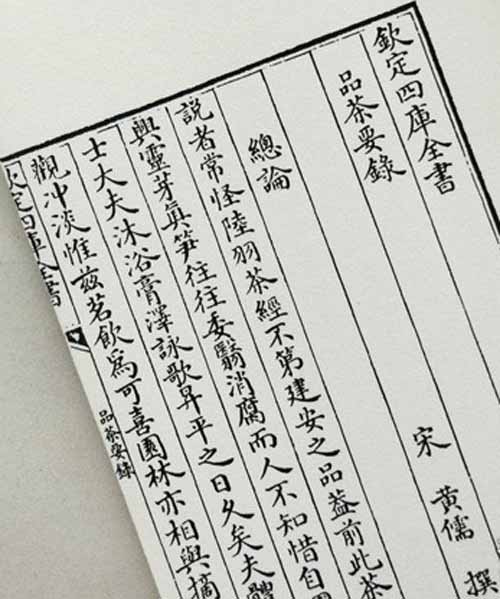 欽定四庫全書
品茶要錄
宋 黃儒 撰
總論
說者常怪陸羽茶經不第建安之品葢前此茶
興靈芽眞笋往往委翳消腐而人不知惜自
士大夫沐浴膏澤詠歌昇平之日久矣夫體
觀冲淡惟兹茗飲爲可喜園林亦相與摘
欽定四庫全書
品茶要錄